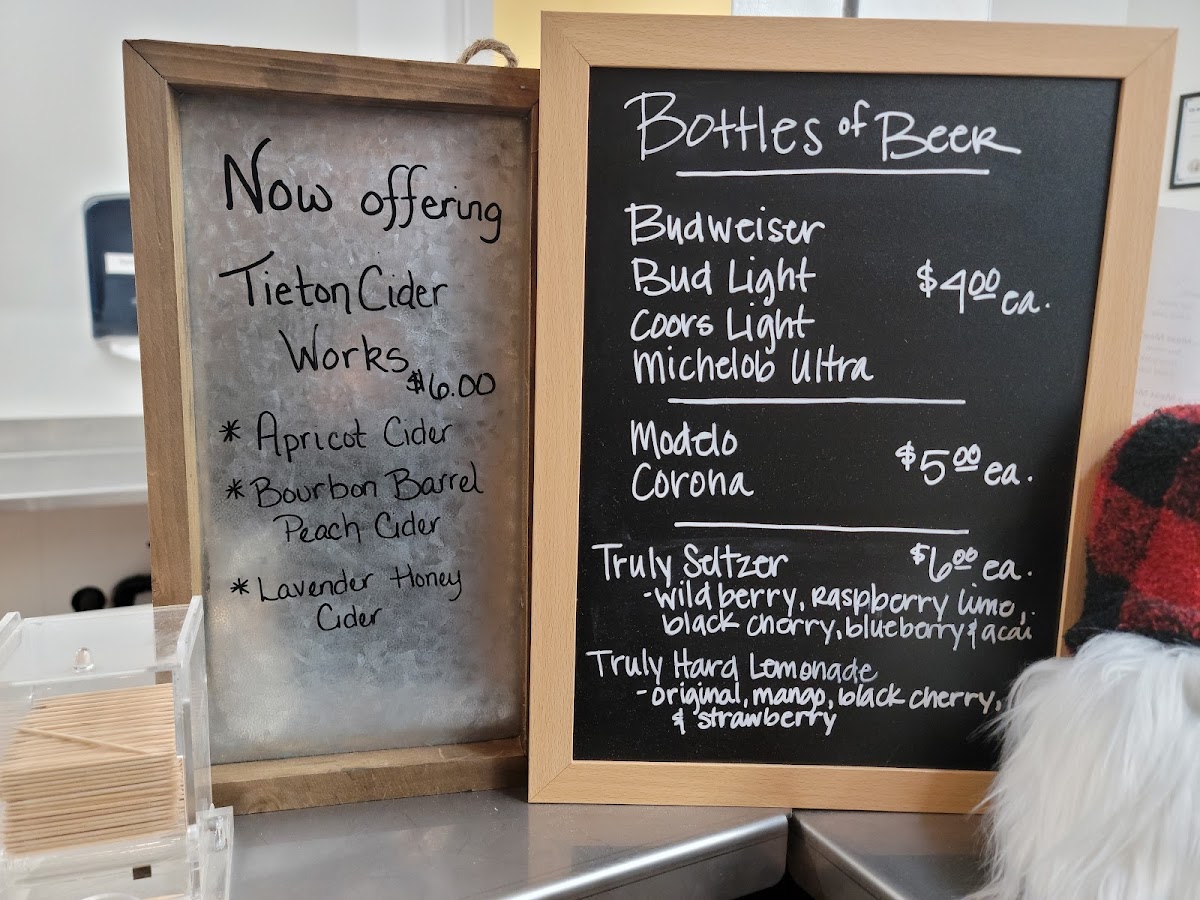 Now offering
Tieton Cider
Works
$6.00
* Apricot Cider
* Bourbon Barrel
Peach Cider
* Lavender Honey
Cider
Bottles of Beer
Budweiser
Bud Light
$4.00 ea.
Coors Light
Michelob Ultra
Modelo
$5.00 ea.
Corona
Truly Seltzer $6.00 ea.
-wild berry, raspberry lime,
black cherry, blueberry & acai
Truly Hard Lemonade
-original, mango, black cherry,
& strawberry